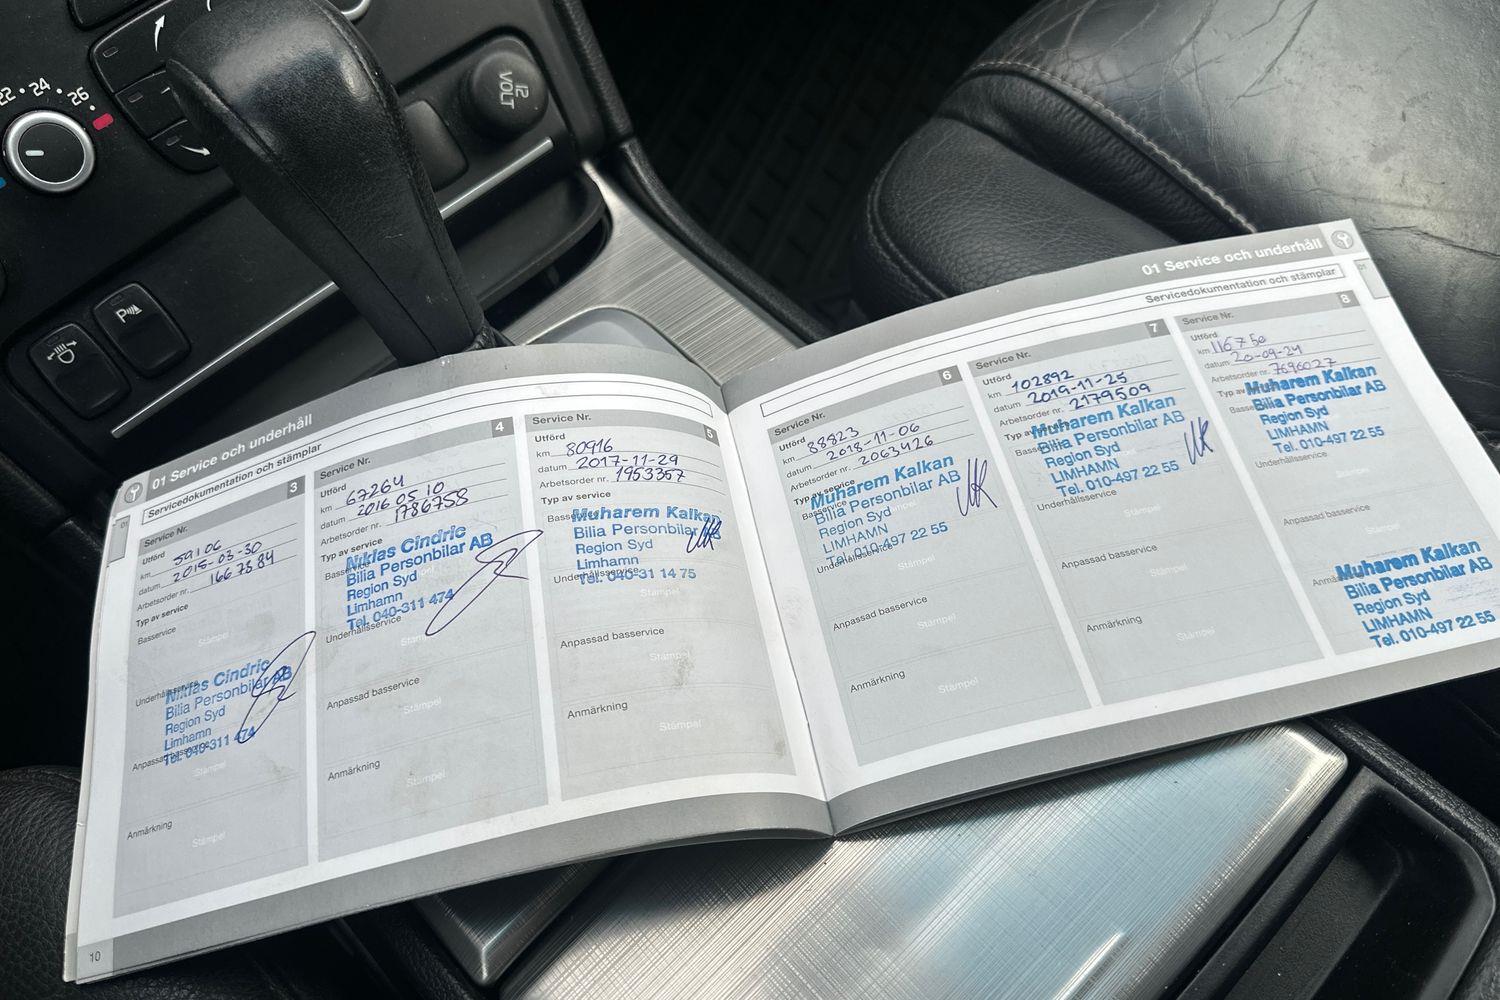 22 · 24 · 26
12
VOLT
01 Service och underhåll
Servicedokumentation och stämplar
01
Service Nr. 3
Utförd
km 59106
datum 2015-03-30
Arbetsorder nr. 1667584
Typ av service
Basservice
Stämpel
Underhållsservice
Niklas Cindric
Bilia Personbilar AB
Region Syd
Limhamn
Tel. 040-311 474
Anpassad basservice
Stämpel
Anmärkning
Stämpel
10
Service Nr. 4
Utförd
km 67264
datum 2016 05 10
Arbetsorder nr. 1786758
Typ av service
Basservice
Niklas Cindric
Bilia Personbilar AB
Region Syd
Limhamn
Tel. 040-311 474
Underhållsservice
Stämpel
Anpassad basservice
Stämpel
Anmärkning
Stämpel
Service Nr. 5
Utförd
km 80916
datum 2017-11-29
Arbetsorder nr. 1953367
Typ av service
Basservice
Muharem Kalkan
Bilia Personbilar AB
Region Syd
Limhamn
Tel. 040-31 14 75
Underhållsservice
Stämpel
Anpassad basservice
Stämpel
Anmärkning
Stämpel
01 Service och underhåll
Servicedokumentation och stämplar
01
Service Nr. 6
Utförd
km 88823
datum 2018-11-06
Arbetsorder nr. 2063426
Typ av service
Basservice
Muharem Kalkan
Bilia Personbilar AB
Region Syd
LIMHAMN
Tel. 010-497 22 55
Underhållsservice
Stämpel
Anpassad basservice
Stämpel
Anmärkning
Stämpel
Service Nr. 7
Utförd
km 102892
datum 2019-11-25
Arbetsorder nr. 2179509
Typ av service
Basservice
Muharem Kalkan
Bilia Personbilar AB
Region Syd
LIMHAMN
Tel. 010-497 22 55
Underhållsservice
Stämpel
Anpassad basservice
Stämpel
Anmärkning
Stämpel
Service Nr. 8
Utförd
km 116750
datum 20-09-24
Arbetsorder nr. 7696027
Typ av
Muharem Kalkan
Bilia Personbilar AB
Region Syd
LIMHAMN
Tel. 010-497 22 55
Underhållsservice
Anpassad basservice
Stämpel
Muharem Kalkan
Bilia Personbilar AB
Region Syd
LIMHAMN
Tel. 010-497 22 55